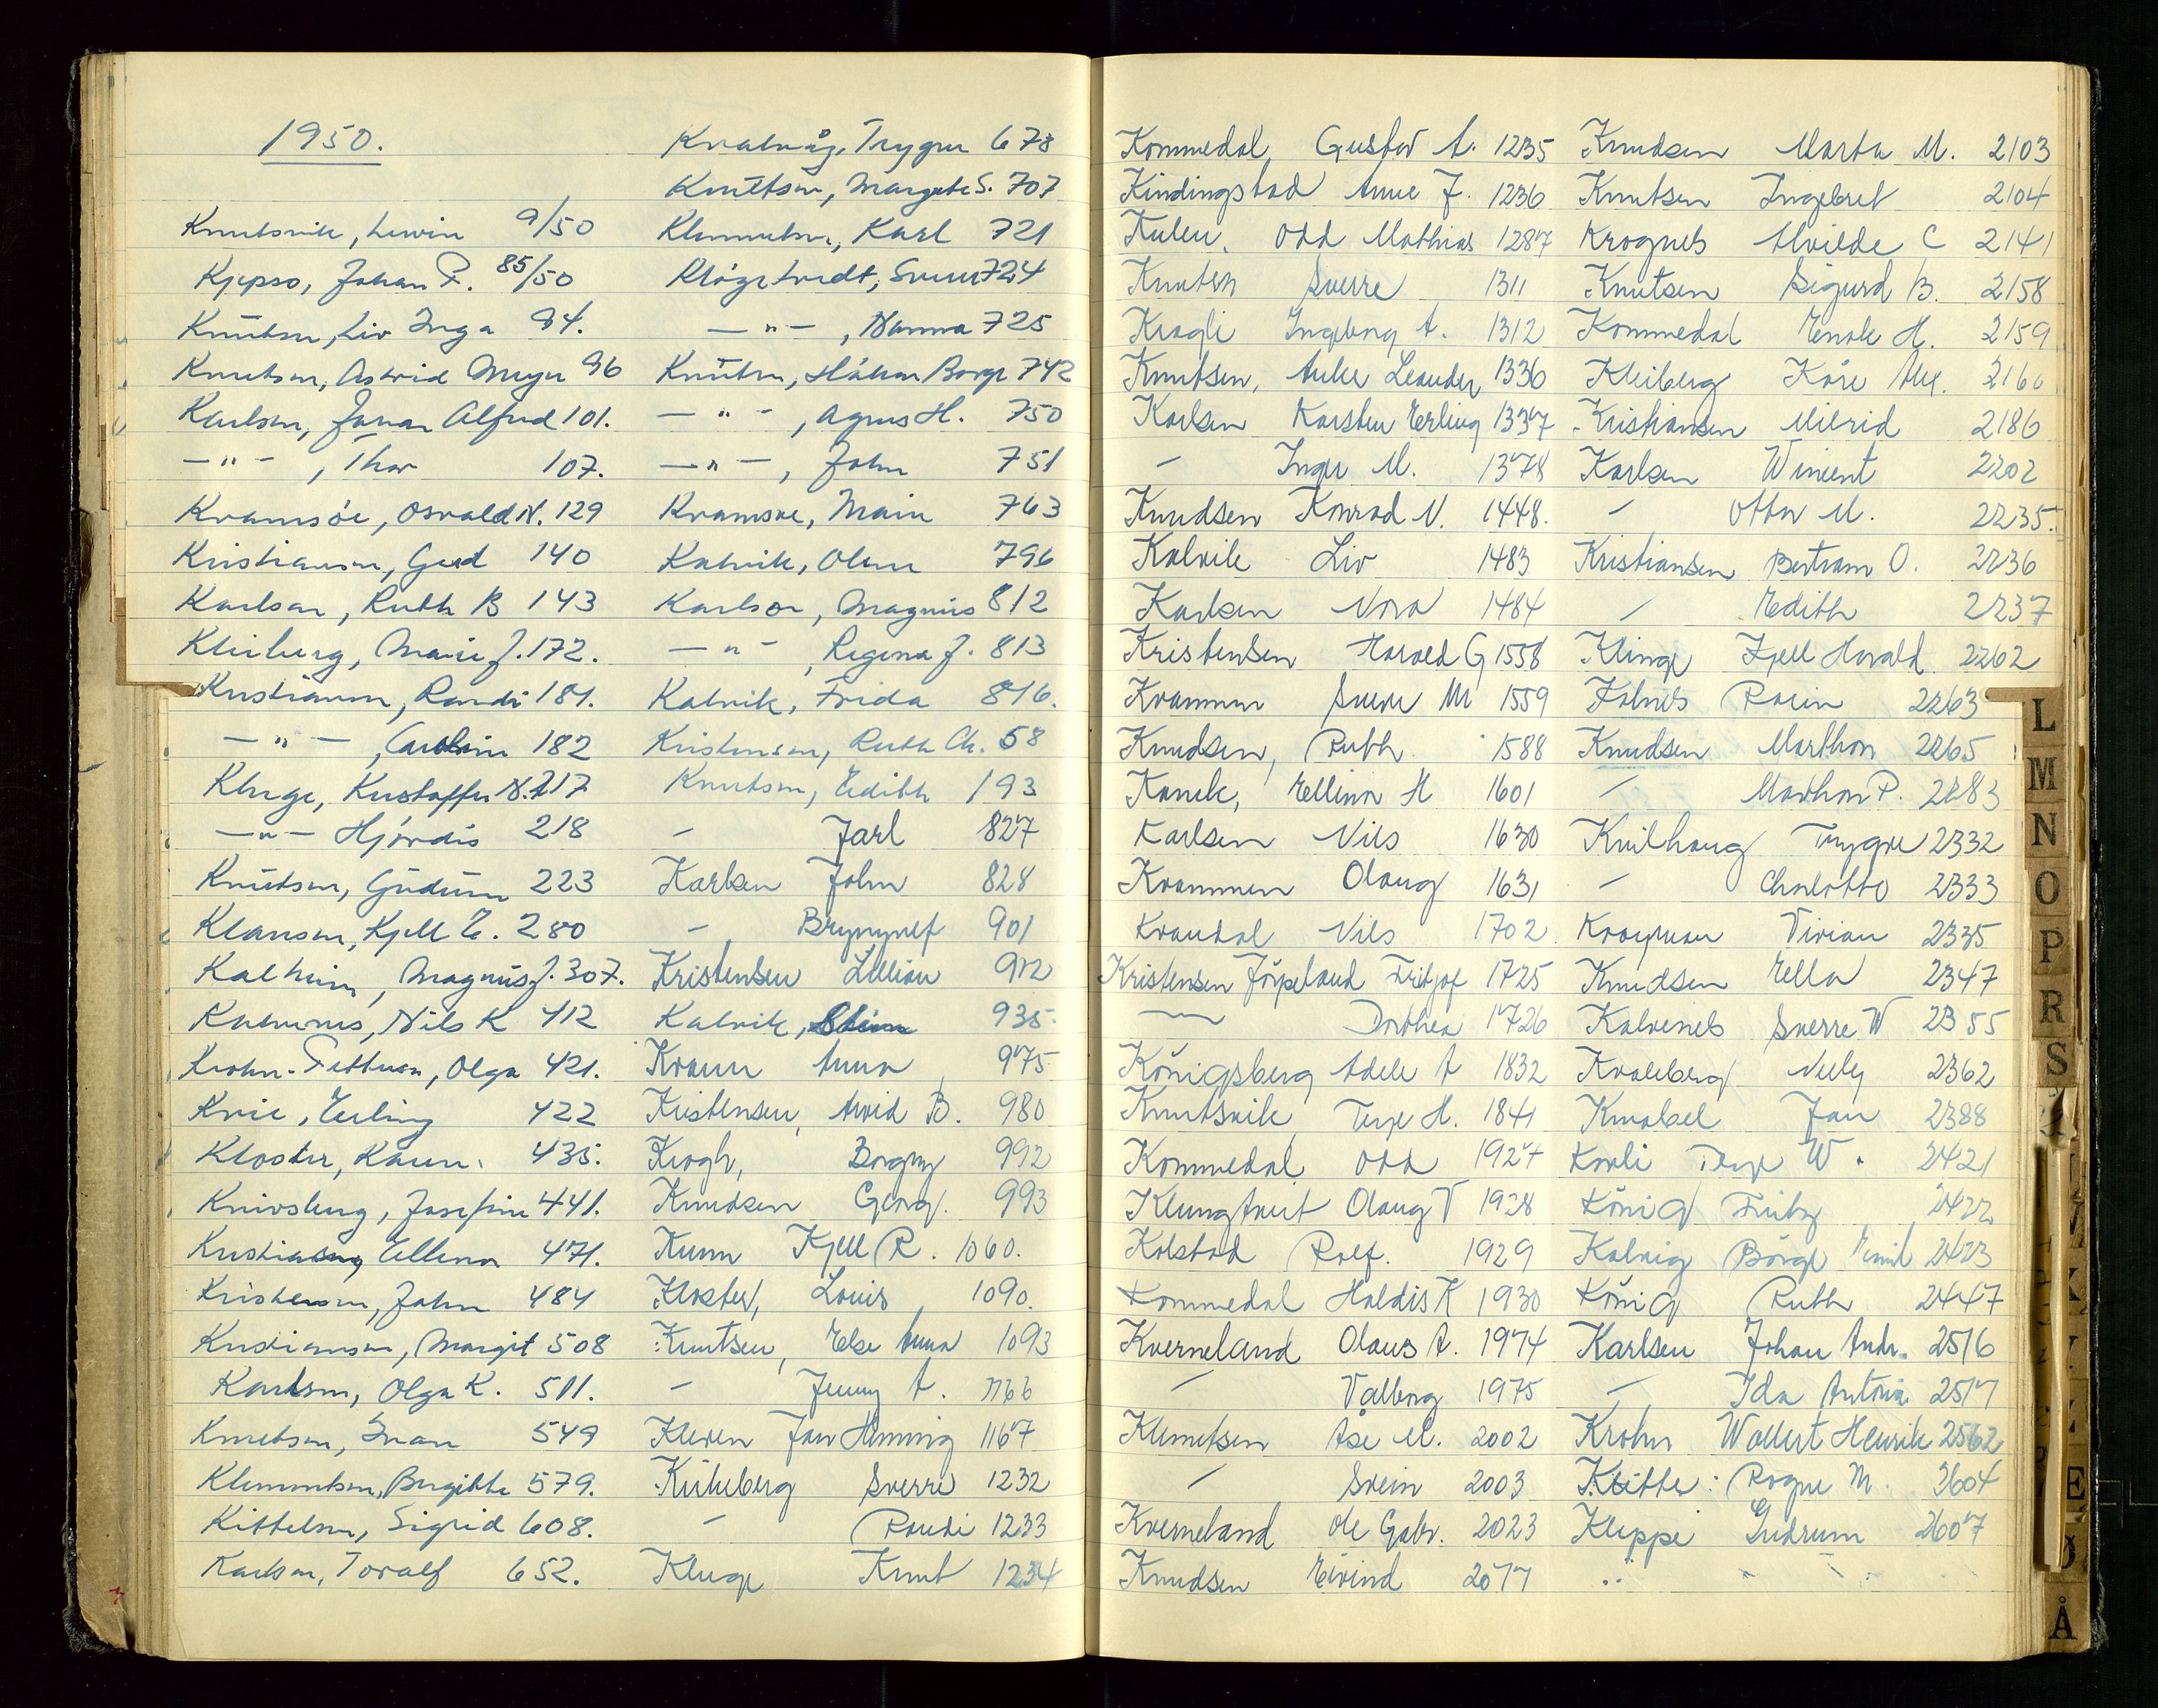 1950.
Knutsvik, Lewin 9/50
Kjepso, Johan F. 85/50
Knutsen, Liv Inga 94.
Knutsen, Astrid Meyer 96
Karlsen, Johan Alfred 101.
—"— , Thor 107.
Kvamsöe, Osvald N. 129
Kristiansen, Gerd 140
Karlsen, Ruth B 143
Kleiberg, Marie J. 172.
Kristiansen, Randi 181.
—"— , Caroline 182
Kluge, Kristoffer N. 217
—"— Hjördis 218
Knutsen, Gudrun 223
Klausen, Kjell E. 280
Kalheim, Magnus J. 307.
Nils K 412
Krohn-Pettersen, Olga 421.
Kvie, Erling 422
Kloster, Karen. 435.
Knivsberg, Josefine 441.
Kristiansen, Ellenor 471.
Kristensen, John 484
Kristiansen, Margit 508
Karlsen, Olga K. 511.
Knutsen, Ivan 549
Klemmetsen, Birgitte 579.
Kittelsen, Sigrid 608.
Karlsen, Toralf 652.
Kvalvåg, Trygve 678
Knutsen, Margrete S. 707
Klemmetsen, Karl 721
Kløgetvedt, Sverre 724
—"— , Nanna 725
Knutsen, Håkon Borge 742
—"— , Agnes H. 750
—"— , John 751
Kvamsøe, Marie 763
Kalvik, Olene 796
Karlsen, Magnus 812
—"— , Regina J. 813
Kalvik, Frida 816.
Kristensen, Ruth Ch. 58
Knutsen, Edith 193
- Jarl 827
Karlsen John 828
- Brynjulf 901
Kristensen Lillian 912
Kalvik, 935.
Kvam Anna 975
Kristensen, Arvid B. 980
Krogh, Borgny 992
Knudsen Georg. 993
Kunn Kjell R. 1060.
Kloster, Louis 1090.
Knutsen, Else Anna 1093
- Jenny A. 1166
Kleven Jan Henning 1167
Kühlberg Sverre 1232
- Randi 1233
Kluge Knut 1234
Kommedal, Gustav A. 1235
Kindingstad Anne J. 1236
Kulen, Odd Mathias 1287
Knutsen Sverre 1311
Kragli Ingeborg A. 1312
Knutsen, Anker Leander 1336
Karlsen Karsten Erling 1337
- Inger M. 1378
Knudsen Konrad N. 1448.
Kalvik Liv 1483
Karlsen Nora 1484
Kristensen Harald G 1558
Krammer Sverre M 1559
Knudsen, Ruth 1588
Kanck, Ellinor H 1601
Karlsen Nils 1630
Krammen Olaug 1631
Kvandal Nils 1702
Kristensen Jörpeland Fritjof 1725
— Dorthea 1726
Königsberg Adele A 1832
Knutsvik Terje H. 1841
Kommedal Odd 1927
Klungtveit Olaug T 1928
Kolstad Rolf. 1929
Kommedal Haldis K 1930
Kverneland Olaus A. 1974
- Valborg 1975
Klemetsen Åse M. 2002
- Svein 2003
Kverneland Ole Gabr. 2023
Knudsen Eivind 2077
Knudsen Marta M. 2103
Knutsen Ingebret 2104
Krognes Alvilde C 2141
Knutsen Sigurd B. 2158
Kommedal Enok H. 2159
Kleiberg Kåre Alex. 2160
Kristiansen Milrid 2186
Karlsen Wincent 2202
- Otto M. 2235.
Kristiansen Bertram O. 2236
- Edith 2237
Klinge Kjell Harald 2262
Kolnes Rolin 2263
Knudsen Marthon 2265
- Marthon P. 2283
Kvilhaug Trygve 2332
- Charlotte 2333
Vivian 2335
Knudsen Ella 2347
Kalvenes Sverre W 2355
Kvaleberg Nelly 2362
Knabel Jan 2388
Kavli Terje W. 2421
König Fritz 2422
Kalvig Börge Emil 2423
König Ruth 2447
Karlsen Johan Andr. 2516
- Ida Antonia 2517
Krohn Wollert Henrik 2562
Kritte: Rogne M. 2604
Kleppe Gudrun 2607
L
M
N
O
P
R
S
E
Ø
Å